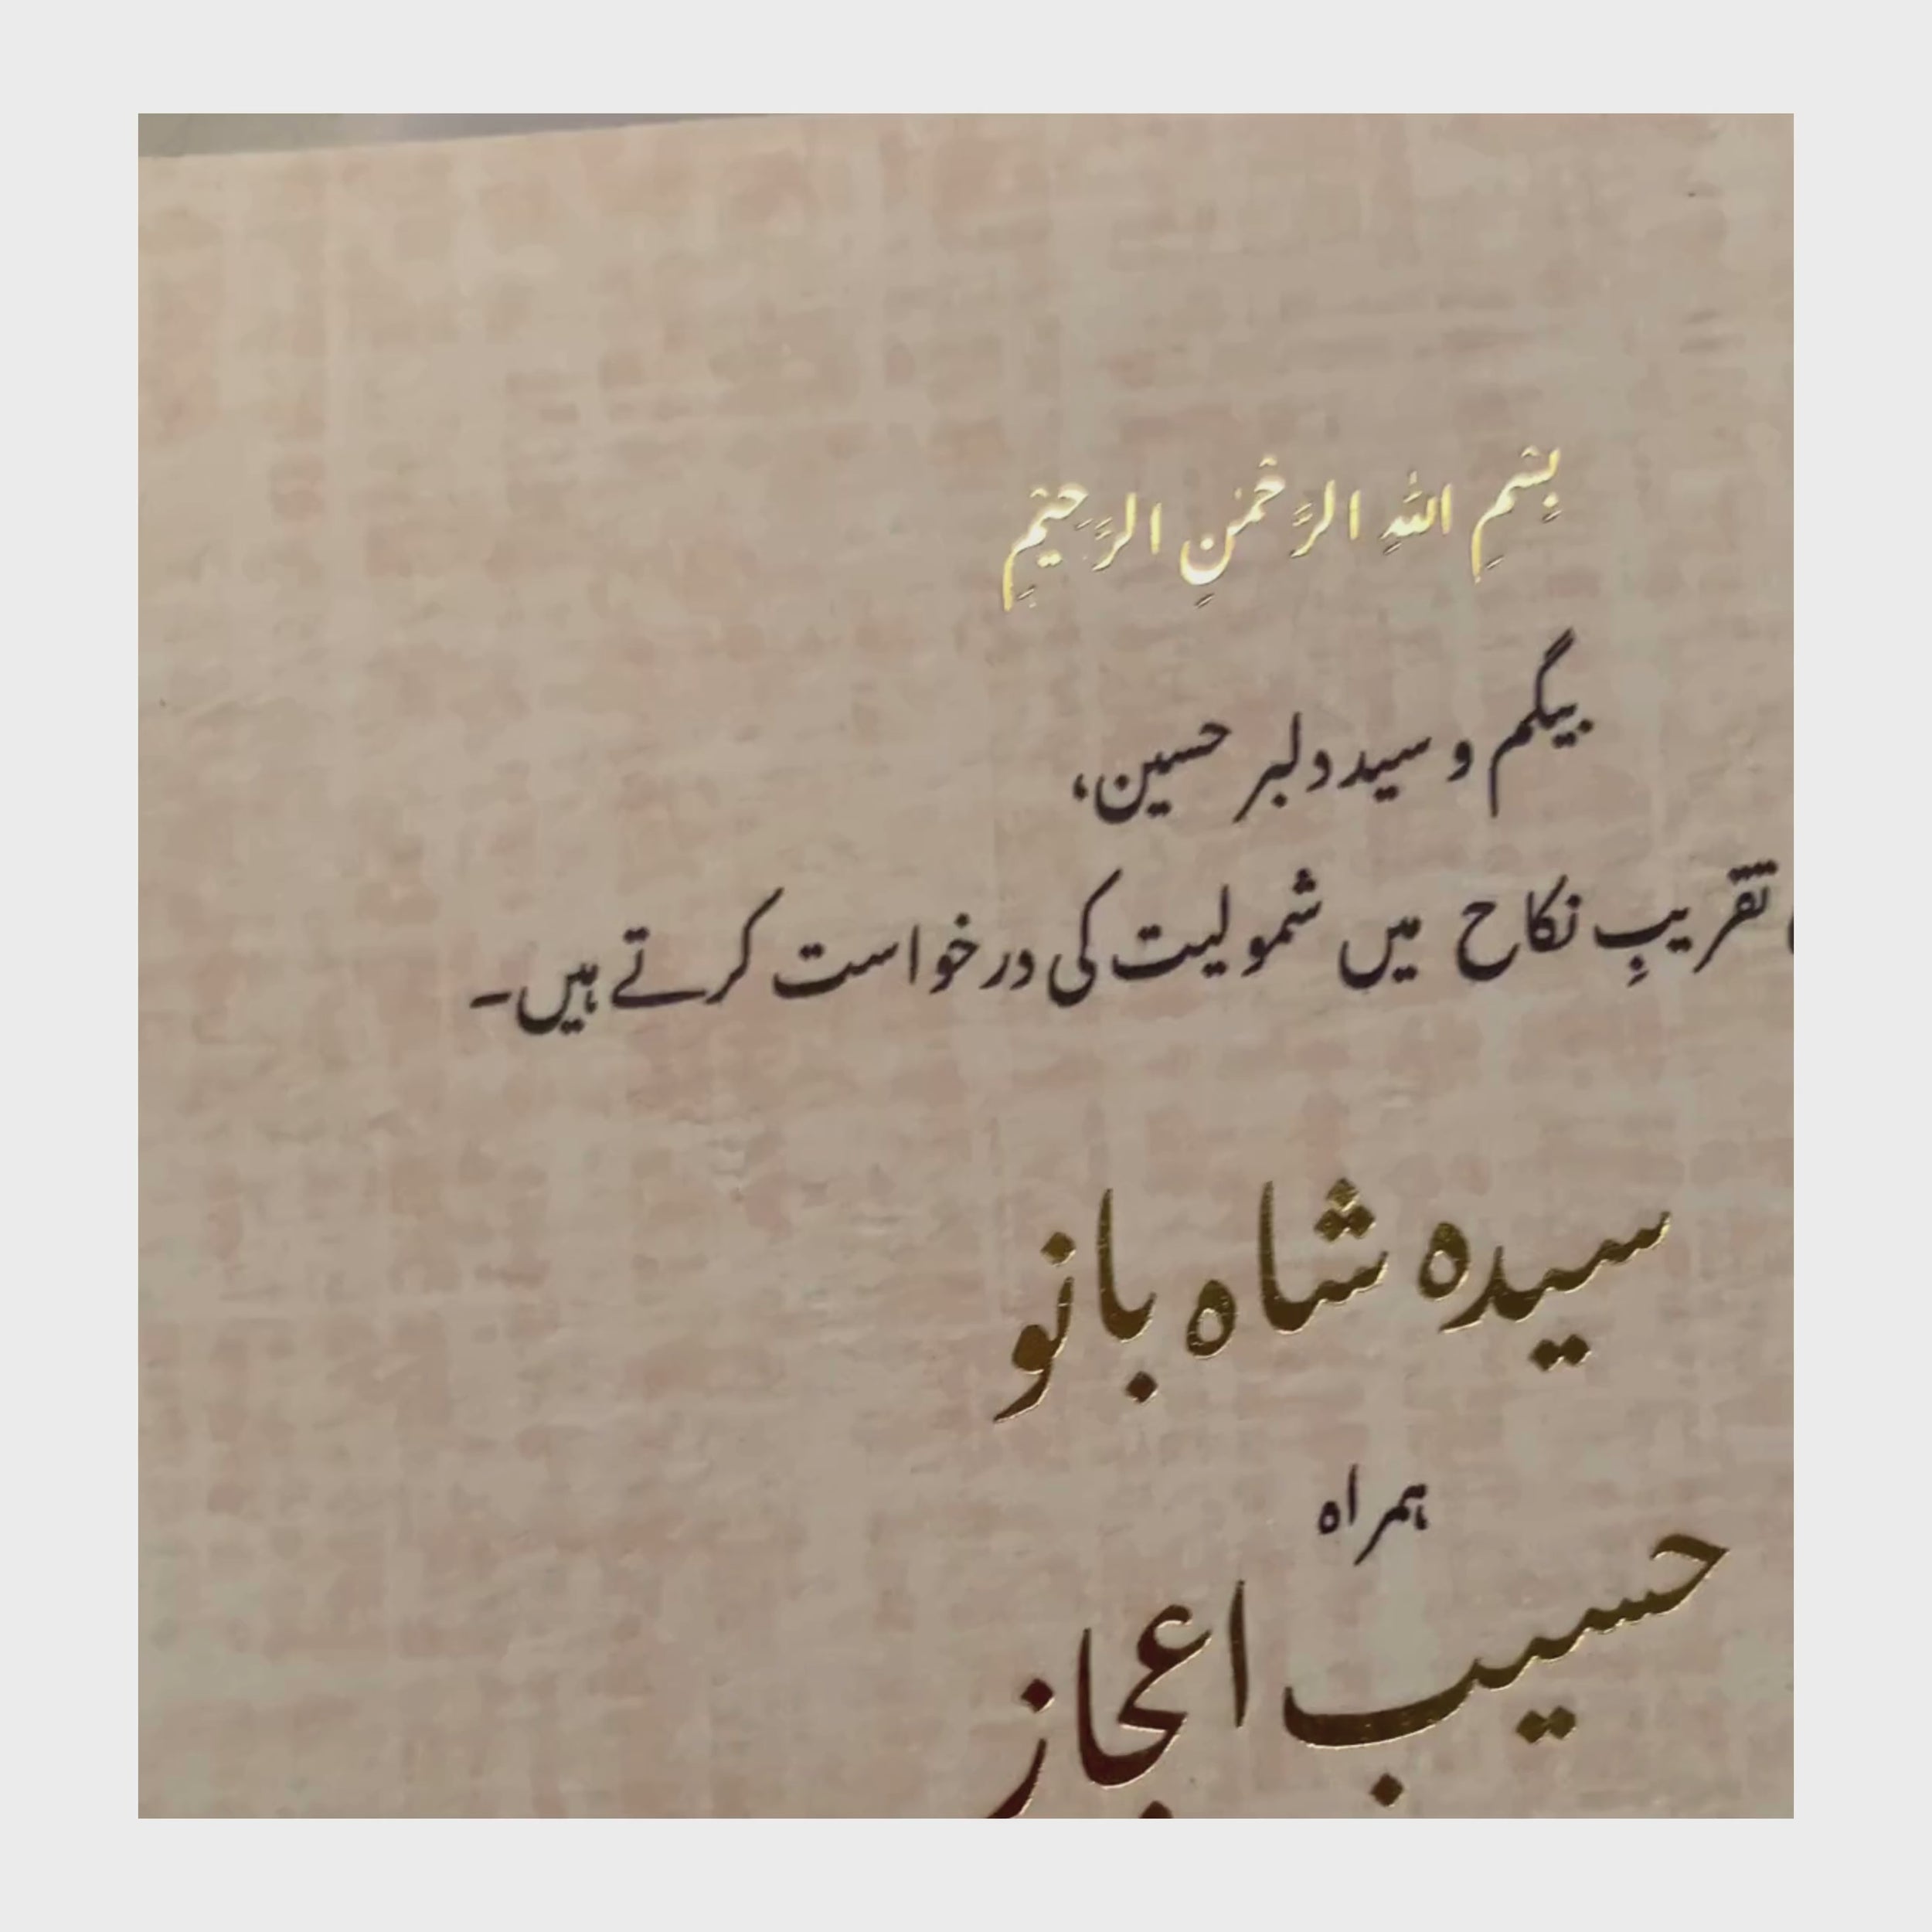 بِسْمِ اللهِ الرَّحْمٰنِ الرَّحِيْمِ
بیگم و سید دلبر حسین،
تقریبِ نکاح میں شمولیت کی درخواست کرتے ہیں۔
سیدہ شاہ بانو
ہمراہ
حسیب اعجاز